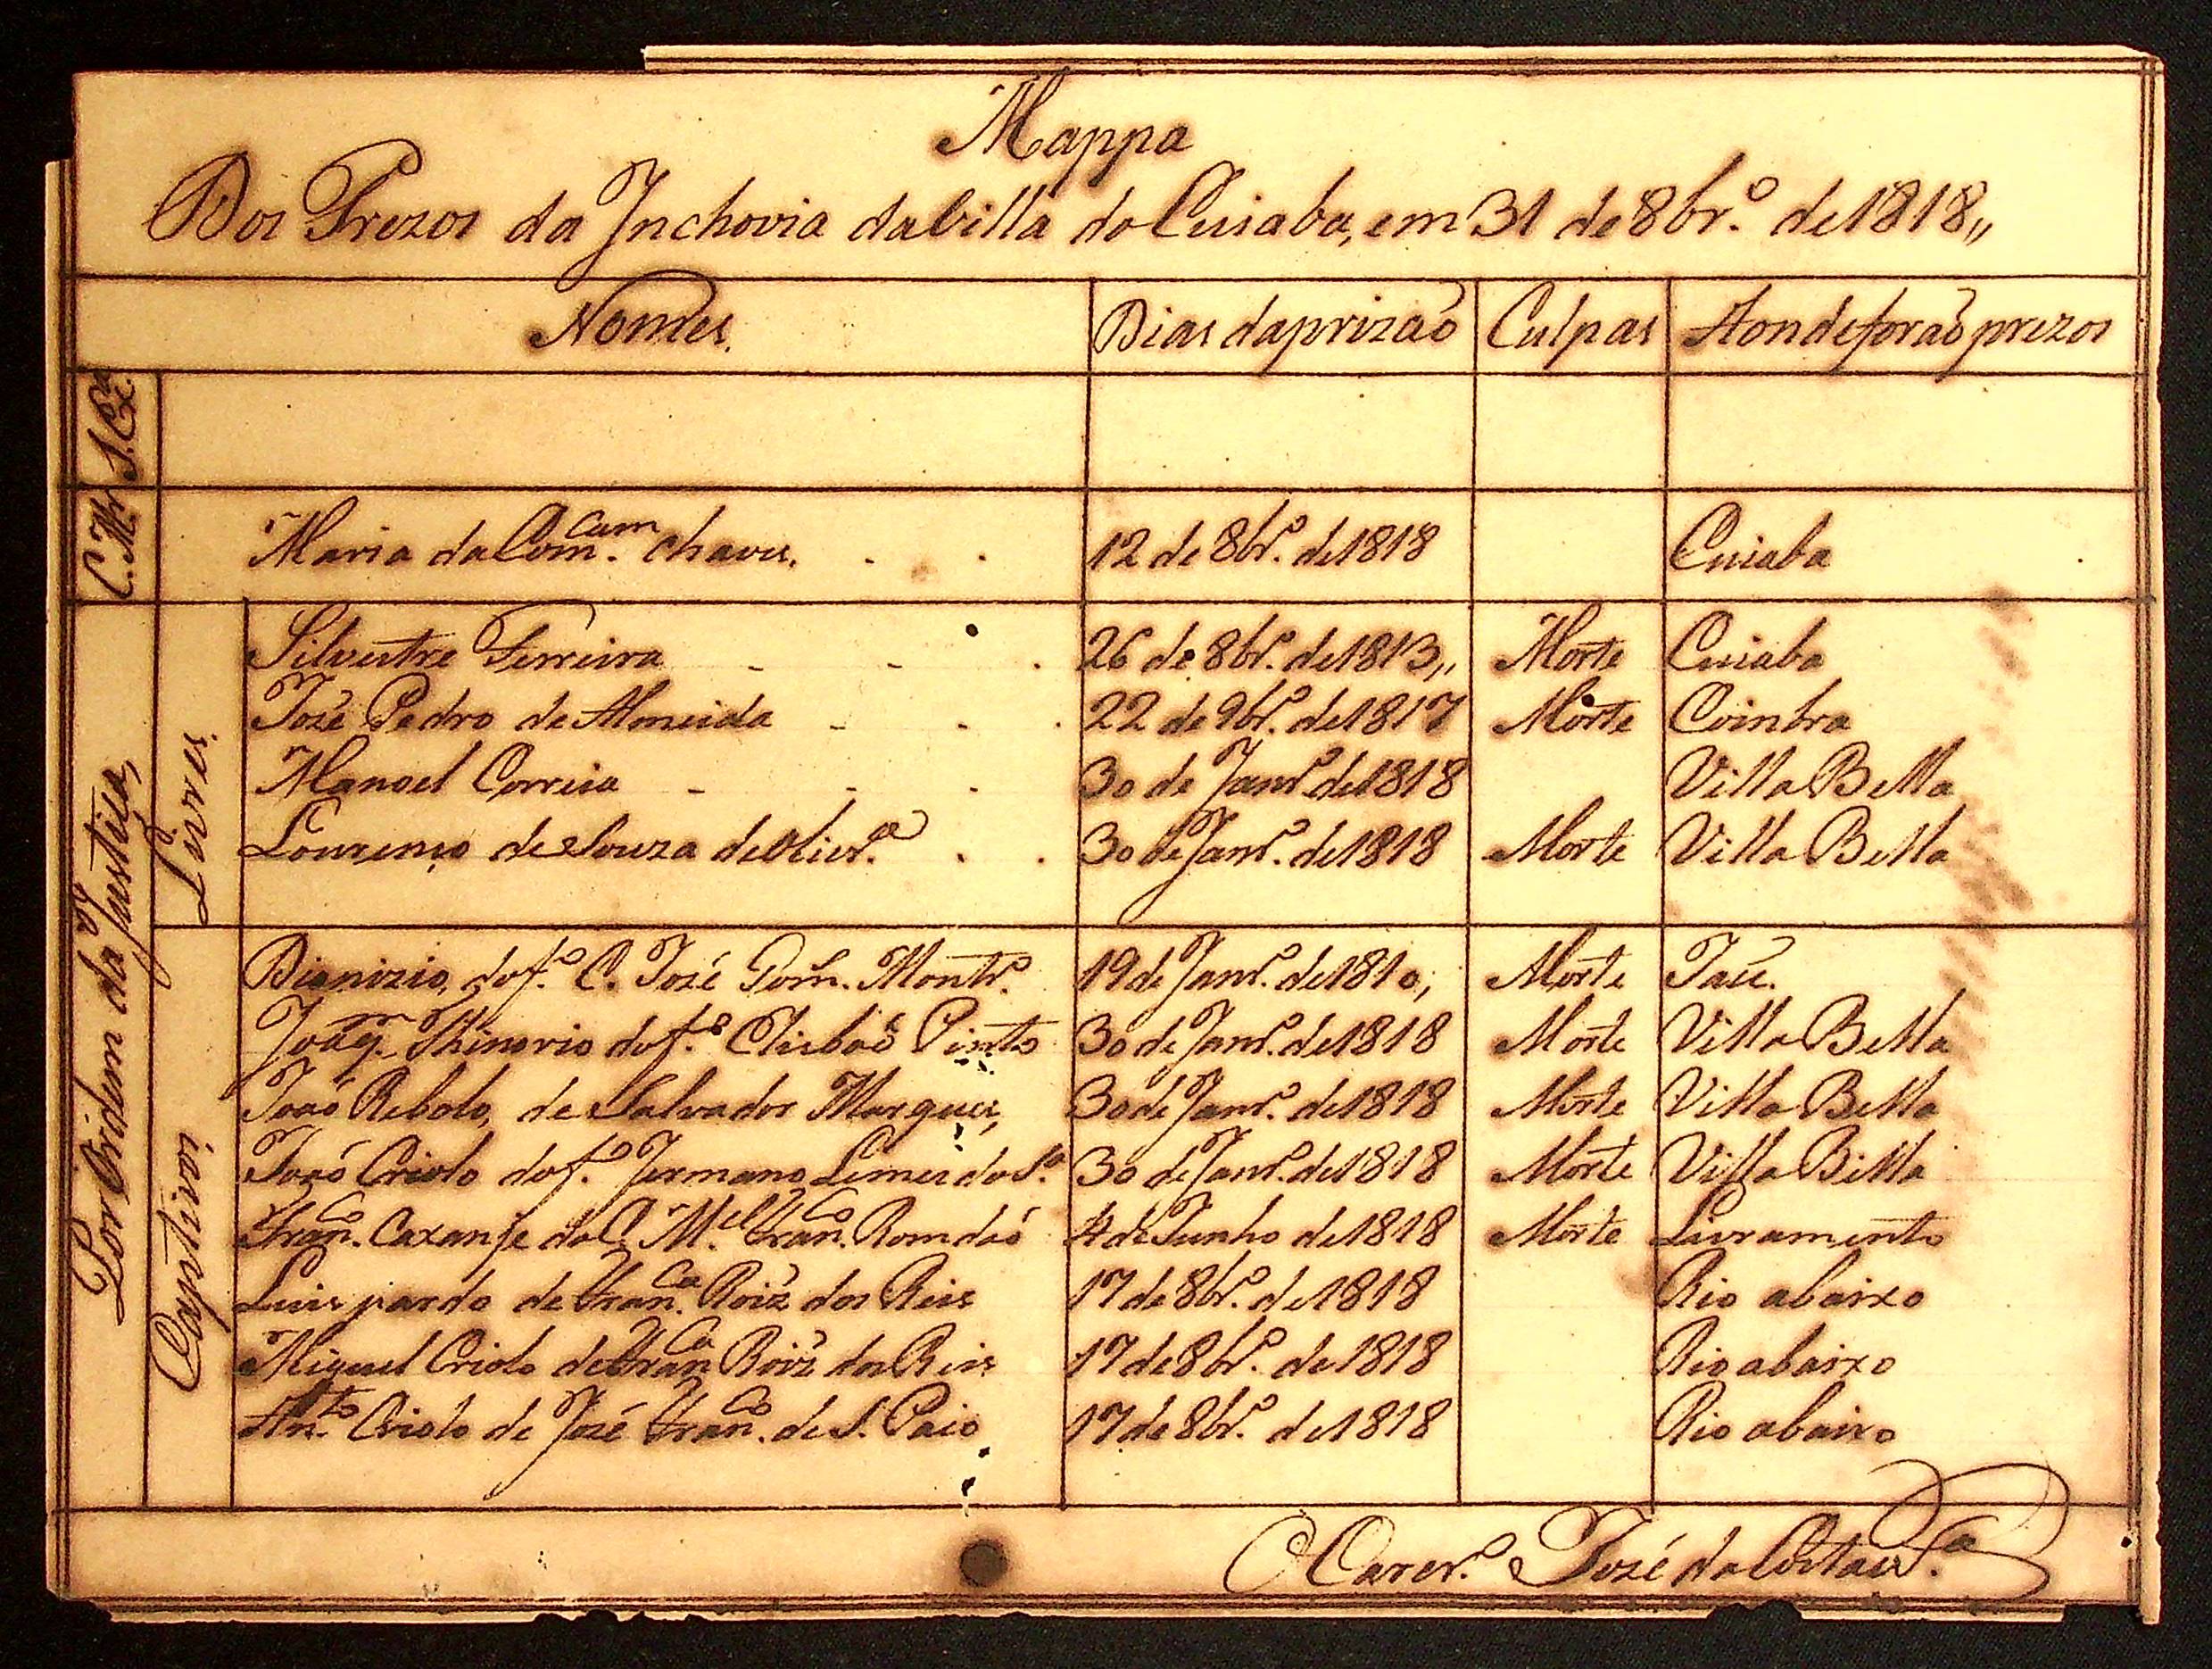 Mappa
Dos Prezos da Inchovia da Villa do Cuiaba, em 31 de 8br.º de 1818,,
Nomes. Dias da prizaõ Culpas Aonde foraõ prezos
C. Mr.
Maria da Com.cam chaves. 12 de 8br.º de 1818 Cuiaba
Por Ordem da Justiça,
Livres.
Silvestre Ferreira 26 de 8br.º de 1813,, Morte Cuiaba
José Pedro de Almeida 22 de 9br.º de 1817 Morte Coimbra
Manoel Correia 30 de Janr.º de 1818 Villa Bella
Lourenço de Souza de Olivr.ª 30 de Janr.º de 1818 Morte Villa Bella
Captivos,
Dionizio, do f.º C. José Gom. Montr.º 19 de Janr.º de 1810, Morte Jaú.
Joaq.m Thenorio do f.º Pinto 30 de Janr.º de 1818 Morte Villa Bella
Joaõ Rebolo, de Salvador Marques, 30 de Janr.º de 1818 Morte Villa Bella
Joaõ Criolo do f.º Jermano Lemes da S.ª 30 de Janr.º de 1818 Morte Villa Bella
Fran.co Caxanje do C. M.el Fran.co Romdaõ 4 de Junho de 1818 Morte Livramento
Luis pardo de Fran.ca Roiz dos Reis 17 de 8br.º de 1818 Rio abaixo
Miguel Criolo de Fran.ca Roiz dos Reis 17 de 8br.º de 1818 Rio abaixo
An.to Criolo de José Fran.co de S. Paio 17 de 8br.º de 1818 Rio abaixo
O Carcr.º José da Costa e S.ª